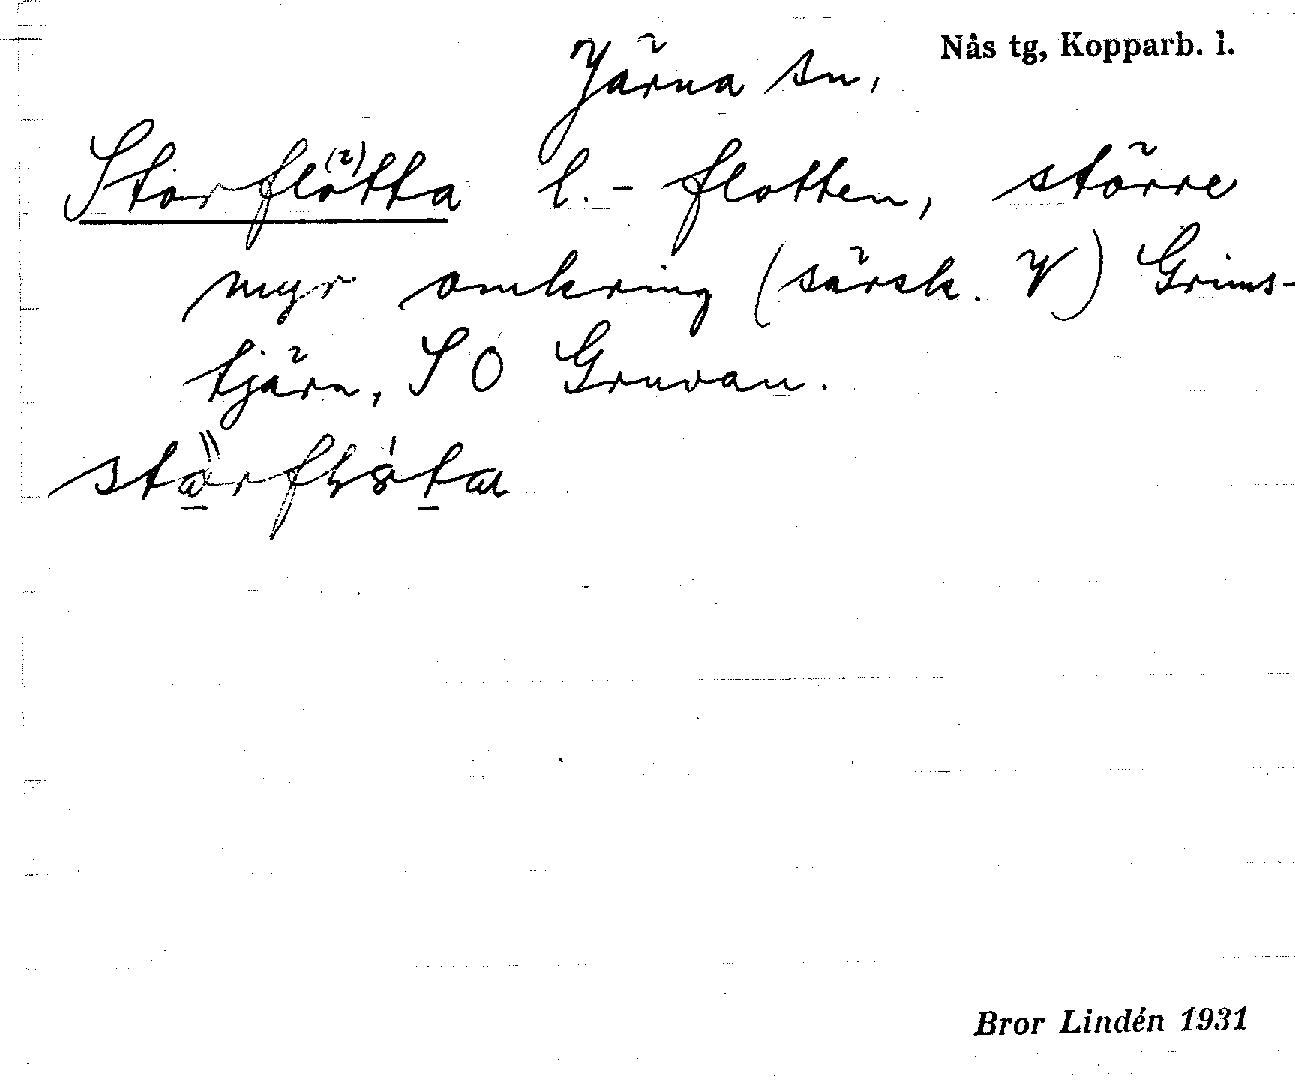 Nås tg, Kopparb. l.
Järna sn,
Storflötta l. -flotten, större
myr omkring (särsk. V) Grims-
tjärn, SO Gruvan.
Bror Lindén 1931